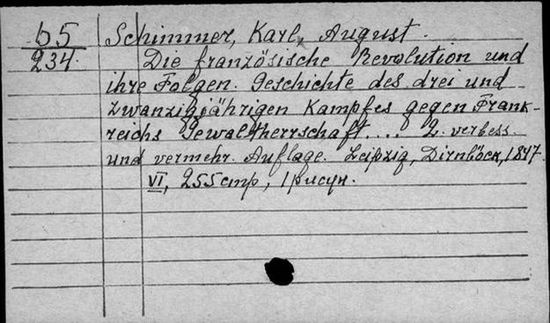 65 Schimmer, Karl, August.
234. Die französische Revolution und
ihre Folgen. Geschichte des drei und
zwanzigjährigen Kampfes gegen Frank-
reichs Gewaltherrschaft... 2. verbess.
und vermehr. Auflage. Leipzig, Dirnböck, 1847.
VI, 255 стр, 1 рисун.